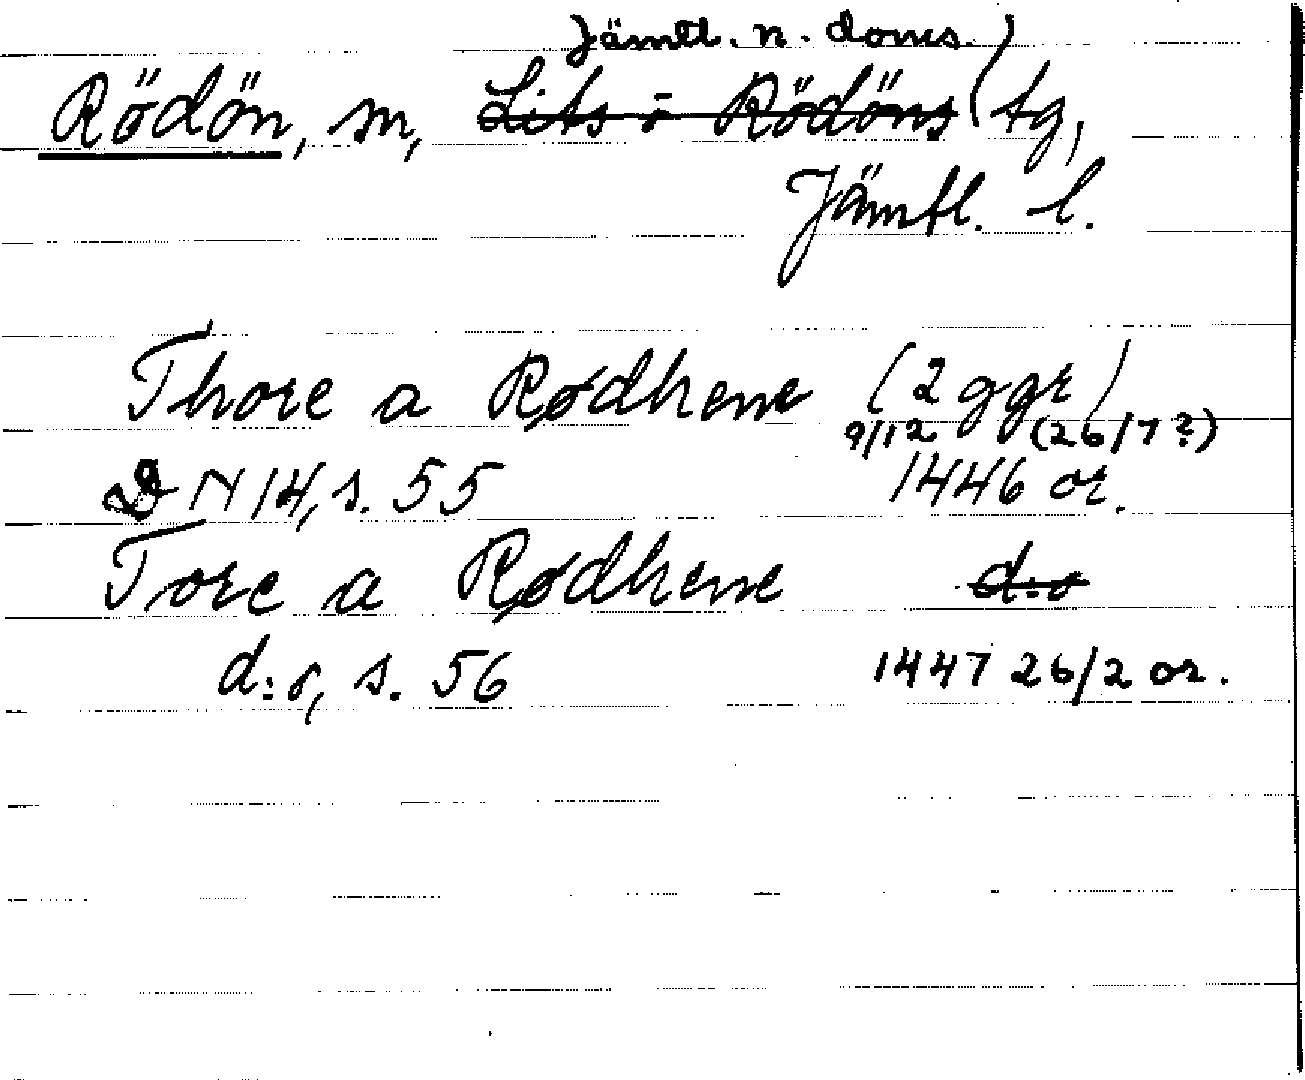 Jämtl. n. doms.
Rödön, sn, Lits o Rödöns tg,
Jämtl. l.
Thore a Rødhene (2 ggr)
9/12 (26/7?)
DN 14, s. 55 1446 or.
Tore a Rødhene d:o
d:o, s. 56 1447 26/2 or.